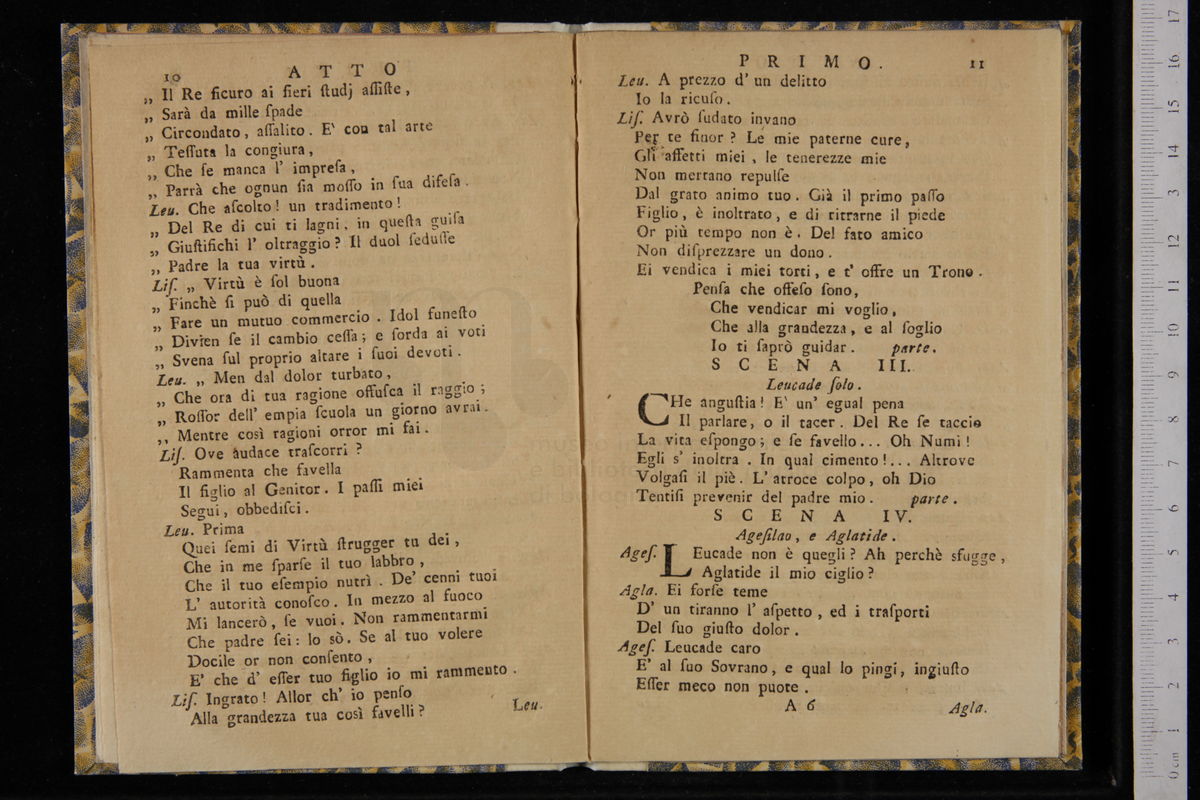 10 ATTO
„ Il Re ſicuro ai fieri ſtudj aſſiſte,
„ Sarà da mille ſpade
„ Circondato, aſſalito. E' con tal arte
„ Teſſuta la congiura,
„ Che ſe manca l' impreſa,
„ Parrà che ognun ſia moſſo in ſua difeſa.
Leu. Che aſcolto! un tradimento!
„ Del Re di cui ti lagni, in queſta guiſa
„ Giuſtifichi l' oltraggio? Il duol ſeduſſe
„ Padre la tua virtù.
Liſ. „ Virtù è ſol buona
„ Finchè ſi può di quella
„ Fare un mutuo commercio. Idol funeſto
„ Divien ſe il cambio ceſſa; e ſorda ai voti
„ Svena ſul proprio altare i ſuoi devoti.
Leu. „ Men dal dolor turbato,
„ Che ora di tua ragione offuſca il raggio;
„ Roſſor dell' empia ſcuola un giorno avrai.
„ Mentre così ragioni orror mi fai.
Liſ. Ove audace traſcorri?
Rammenta che favella
Il figlio al Genitor. I paſſi miei
Segui, obbediſci.
Leu. Prima
Quei ſemi di Virtù ſtrugger tu dei,
Che in me ſparſe il tuo labbro,
Che il tuo eſempio nutrì. De' cenni tuoi
L' autorità conoſco. In mezzo al fuoco
Mi lancerò, ſe vuoi. Non rammentarmi
Che padre ſei: lo sò. Se al tuo volere
Docile or non conſento,
E' che d' eſſer tuo figlio io mi rammento.
Liſ. Ingrato! Allor ch' io penſo
Alla grandezza tua così favelli?
Leu.
PRIMO. 11
Leu. A prezzo d' un delitto
Io la ricuſo.
Liſ. Avrò ſudato invano
Per te finor? Le mie paterne cure,
Gli affetti miei, le tenerezze mie
Non mertano repulſe
Dal grato animo tuo. Già il primo paſſo
Figlio, è inoltrato, e di ritrarne il piede
Or più tempo non è. Del fato amico
Non diſprezzare un dono.
Ei vendica i miei torti, e t' offre un Trono.
Penſa che offeſo ſono,
Che vendicar mi voglio,
Che alla grandezza, e al ſoglio
Io ti ſaprò guidar. parte.
SCENA III.
Leucade ſolo.
CHe anguſtia! E' un' egual pena
Il parlare, o il tacer. Del Re ſe taccio
La vita eſpongo; e ſe favello... Oh Numi!
Egli s' inoltra. In qual cimento!... Altrove
Volgaſi il piè. L' atroce colpo, oh Dio
Tentiſi prevenir del padre mio. parte.
SCENA IV.
Ageſilao, e Aglatide.
Ageſ. LEucade non è quegli? Ah perchè sfugge,
Aglatide il mio ciglio?
Agla. Ei forſe teme
D' un tiranno l' aſpetto, ed i traſporti
Del ſuo giuſto dolor.
Ageſ. Leucade caro
E' al ſuo Sovrano, e qual lo pingi, ingiuſto
Eſſer meco non puote.
A 6 Agla.